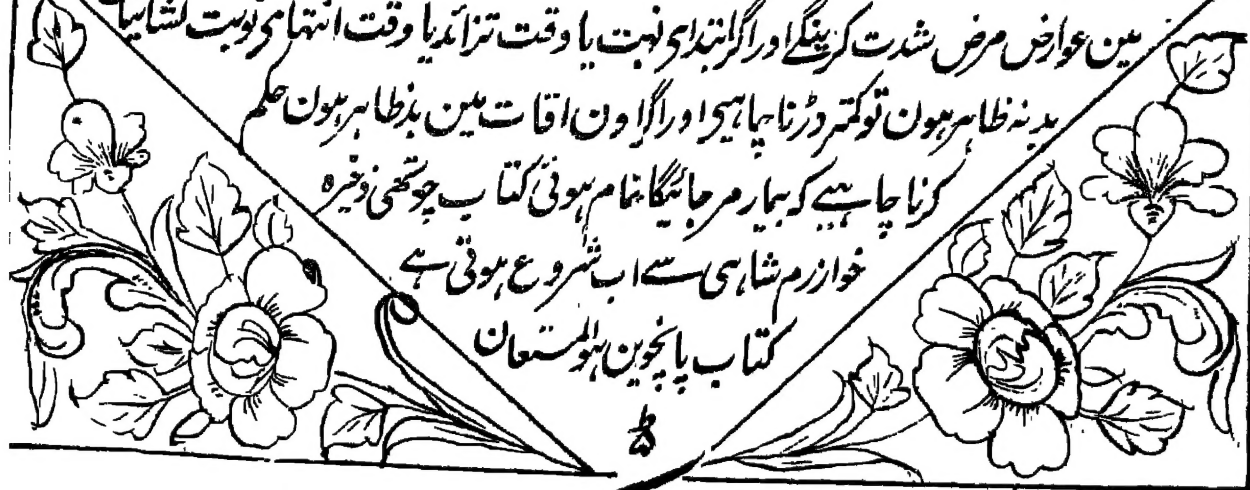 مین عوارض مرض شدت کرینگے اور اگر ابتدای نہبت یا وقت تزائد یا وقت انتہا می نوبت نشانیان
بد نہ ظاہر ہون تو کمتر ڈرنا چاہیے اور اگر اون اقات مین بد ظاہر ہون حکم
کرنا چاہیے کہ بیمار مر جائیگا تمام ہوئی کتاب چوتھی ذخیرہ
خوارزم شاہی سے اب شروع ہوتی ہے
کتاب پانچوین ہو المستعان